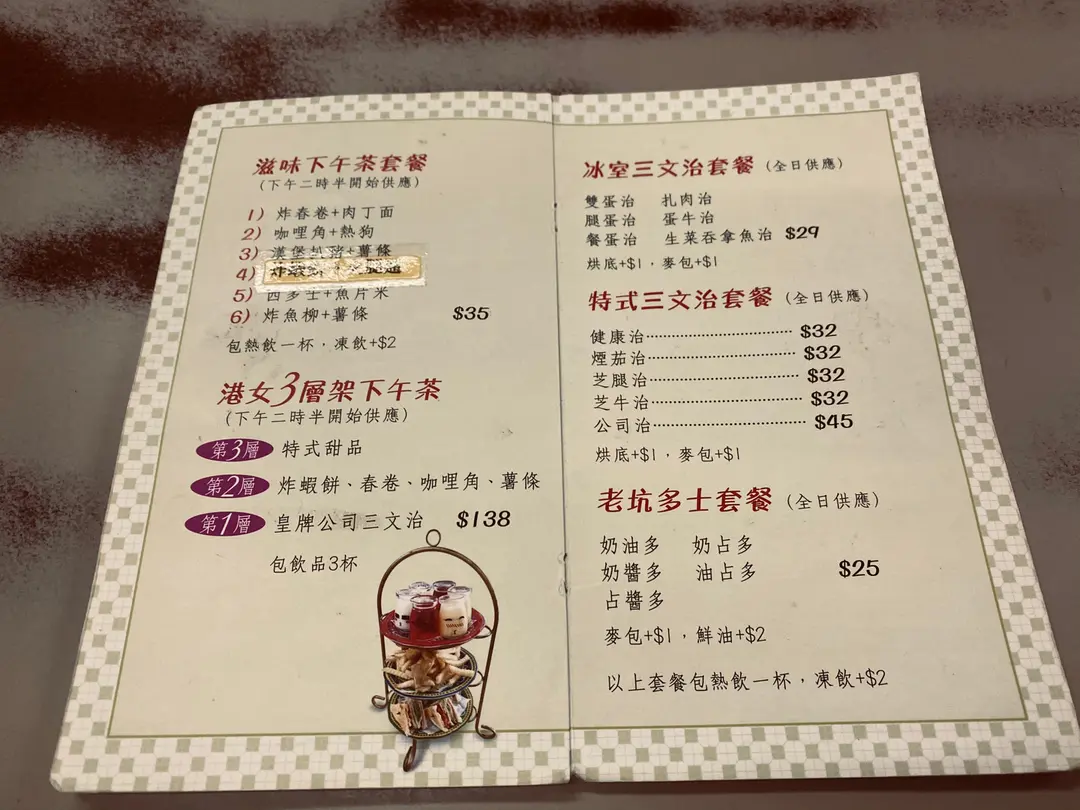 滋味下午茶套餐
(下午二時半開始供應)
1) 炸春卷+肉丁面
2) 咖哩角+熱狗
3) 漢堡扒豬+薯條
4) 炸蝦餅
5) 西多士+魚片米
6) 炸魚柳+薯條 $35
包熱飲一杯，凍飲+$2
港女3層架下午茶
(下午二時半開始供應)
第3層 特式甜品
第2層 炸蝦餅、春卷、咖哩角、薯條
第1層 皇牌公司三文治 $138
包飲品3杯
冰室三文治套餐 (全日供應)
雙蛋治 扎肉治
腿蛋治 蛋牛治
餐蛋治 生菜吞拿魚治 $29
烘底+$1，麥包+$1
特式三文治套餐 (全日供應)
健康治 $32
煙茄治 $32
芝腿治 $32
芝牛治 $32
公司治 $45
烘底+$1，麥包+$1
老坑多士套餐 (全日供應)
奶油多 奶占多
奶醬多 油占多 $25
占醬多
麥包+$1，鮮油+$2
以上套餐包熱飲一杯，凍飲+$2